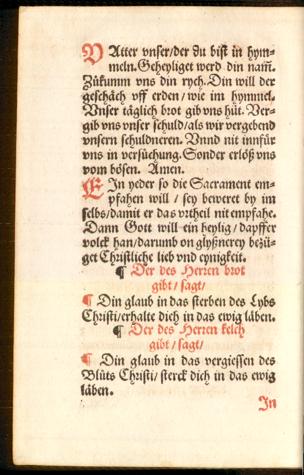 VAtter vnser/der du bist in hym-
meln. Geheyliget werd din nam̃.
Zůkumm vns din rych. Din will der
geschäch vff erden/wie im hymmel.
Vnser täglich brot gib vns hüt. Ver-
gib vns vnser schuld/als wir vergebend
vnsern schuldneren. Vnnd nit innfür
vns in versůchung. Sonder erlöß vns
vom bösen. Amen.
EIn yeder so die Sacrament em-
pfahen will/sey beweret by im
selbs/damit er das vrtheil nit empfahe.
Dann Gott will ein heylig/dapffer
volck han/darumb on glyßnerey bezü-
get Christliche lieb vnd eynigkeit.
¶ Der des Herren brot
gibt/sagt/
¶ Din glaub in das sterben des Lybs
Christi/erhalte dich in das ewig läben.
¶ Der des Herren kelch
gibt/sagt/
¶ Din glaub in das vergiessen des
Blůts Christi/sterck dich in das ewig
läben.
In